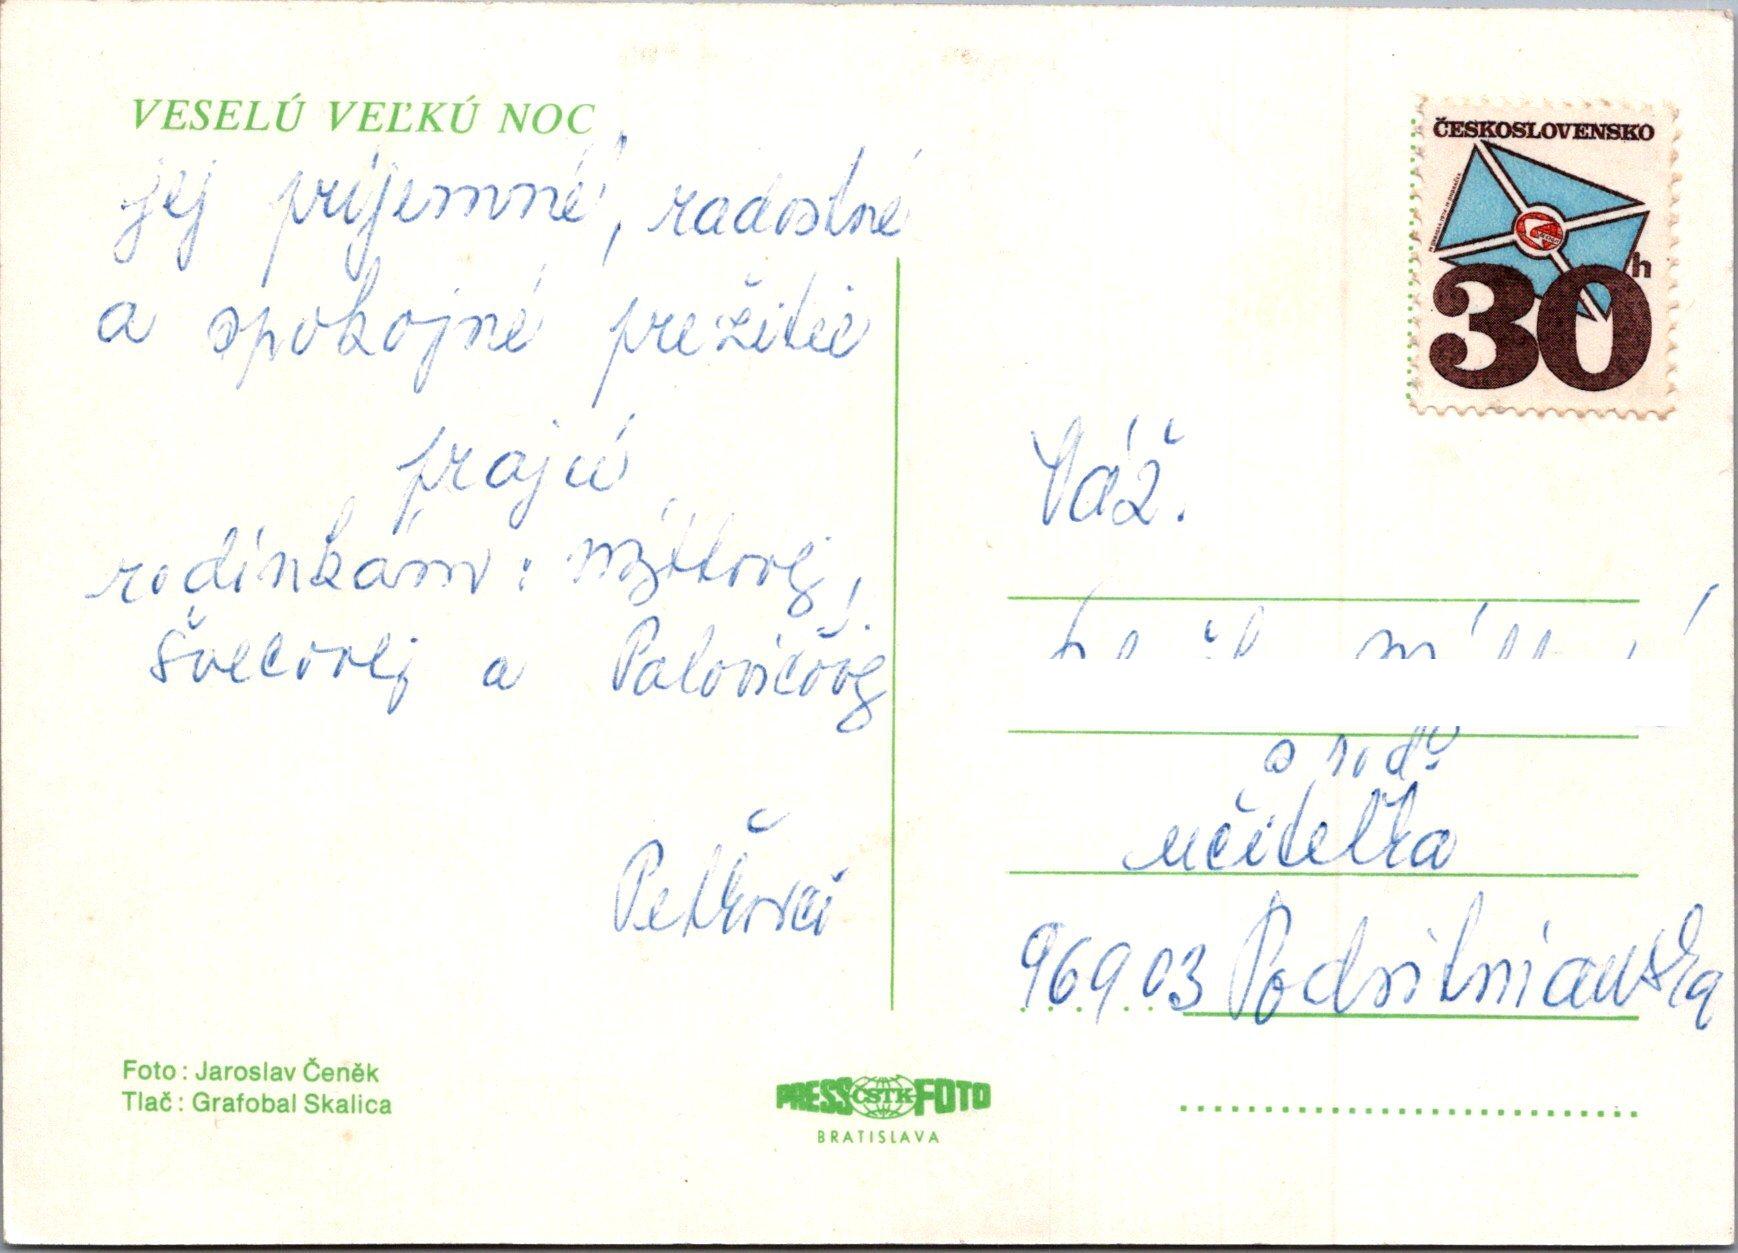 VESELÚ VEĽKÚ NOC,
jej príjemné, radostné
a spokojné prežitie
prajú
rodinkám:
Švecovej a Palovičovej
Petkovci
Foto : Jaroslav Čeněk
Tlač : Grafobal Skalica
PRESS ČSTK FOTO
BRATISLAVA
ČESKOSLOVENSKO
30h
Váž.
s rod.
učiteľka
969 03